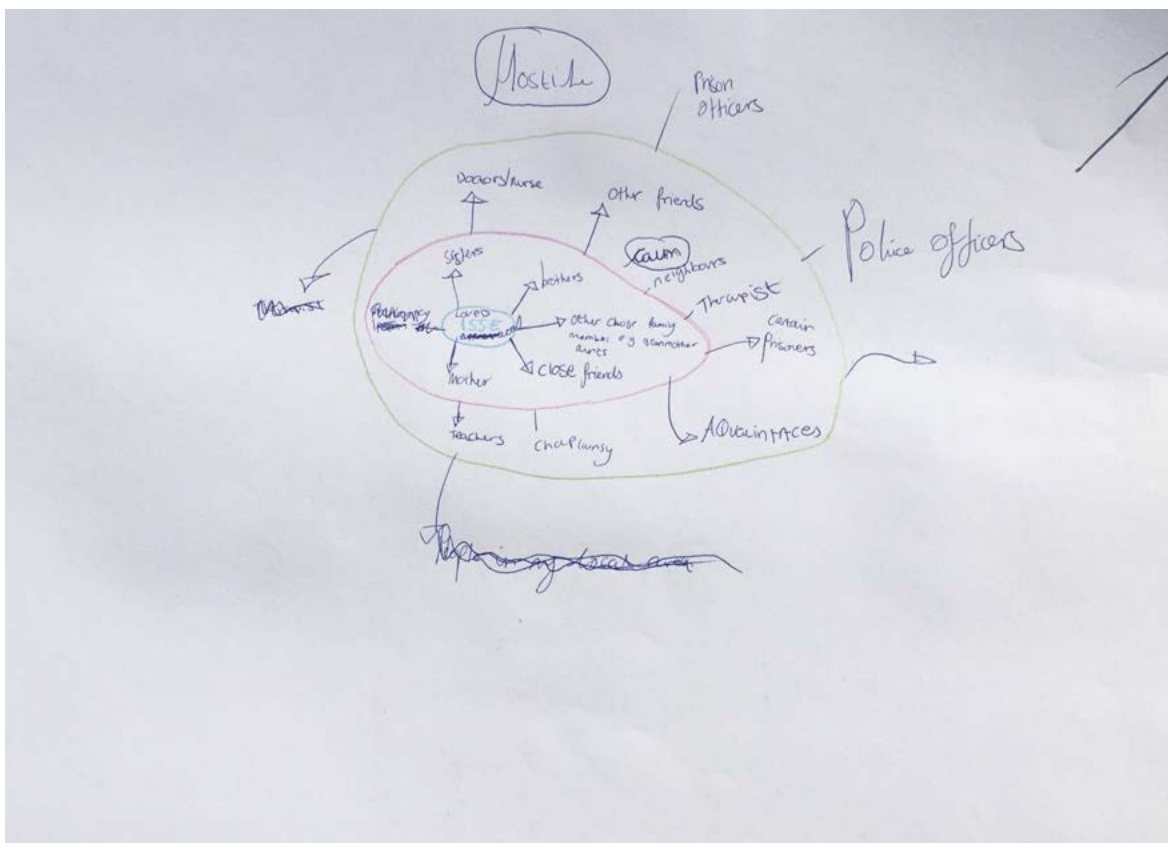 Hostile
Prison
Officers
Doctors/nurse
Other friends
Police officers
Sisters
Calm
neighbours
brothers
Therapist
Loved
Other close family
member e.g grammother
aunts
Certain
Prisoners
Mother
close friends
Teachers
Chapliansy
AQualintACES